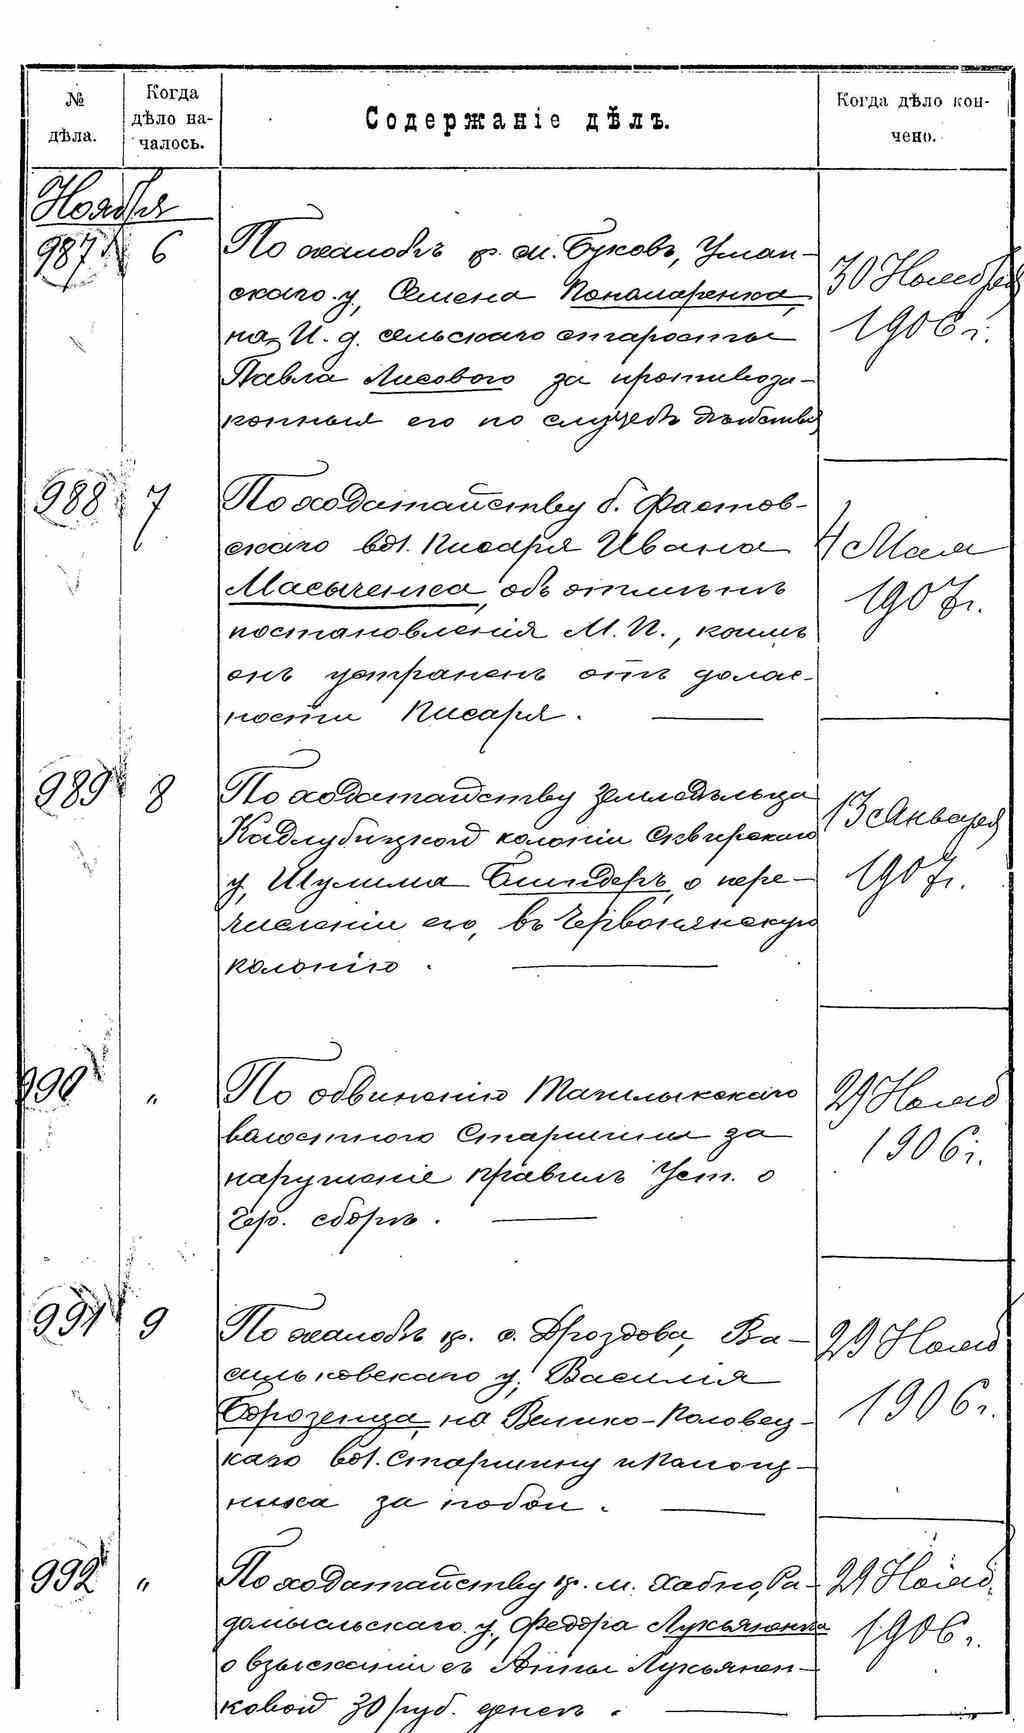 № дѣла.
Когда дѣло началось.
Содержаніе дѣлъ.
Когда дѣло кончено.
Ноября
987 6
По жалобѣ кр. м. Буковъ, Уман-
скаго у, Семена Пономаренка,
на И. д. сельскаго старосты
Павла Лисового за противоза-
конныя его по службѣ дѣйствія
30 Ноября
1906 г.
988 7
По ходатайству б. Фастов-
скаго вол. Писаря Ивана
Масыченка, объ отмѣнѣ
постановленія М. П., коимъ
онъ устраненъ отъ долж-
ности Писаря.
4 Мая
1907 г.
989 8
По ходатайству земледѣльца
Кадлубицкой колоніи Сквирскаго
у, Шулима Блиндеръ, о пере-
численіи его, въ Червонянскую
колонію.
13 Января
1907 г.
990 "
По обвиненію Тагилыкскаго
волостного Старшины за
нарушеніе правилъ Уст. о
Гер. сборѣ.
29 Нояб
1906 г.
991 9
По жалобѣ кр. с. Дроздова, Ва-
сильковскаго у, Василія
Борозенца, на Велико-Половец-
каго вол. Старшину и Помощ-
ника за побои.
29 Нояб
1906 г.
992 "
По ходатайству кр. м. Хабно, Ра-
домысльскаго у, Федора Лукьяненка
о взысканіи съ Анны Лукьянен-
ковой 30 руб. денег.
29 Нояб.
1906 г.